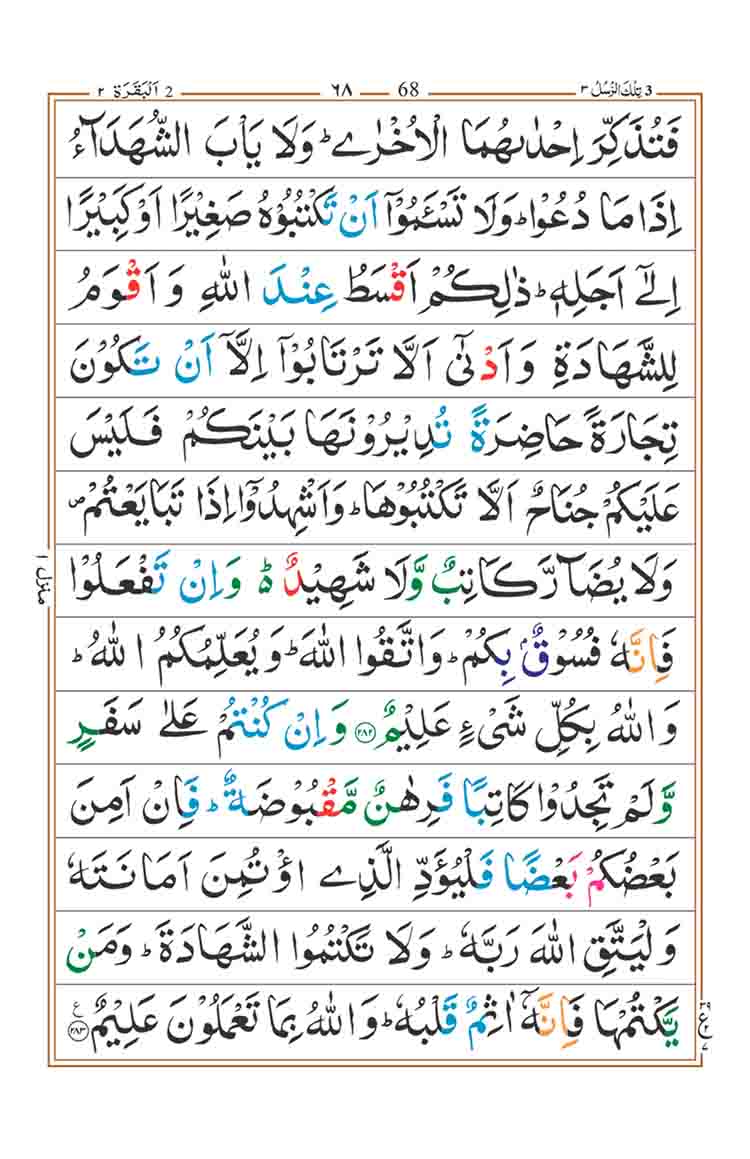 3 تِلْكَ الرُّسُلُ ٣ 68 ٦٨ 2 اَلْبَقَرَة ٢
فَتُذَكِّرَ اِحْدٰىهُمَا الْاُخْرٰىؕ وَلَا يَاْبَ الشُّهَدَآءُ
اِذَا مَا دُعُوْاؕ وَلَا تَسْـَٔمُوْۤا اَنْ تَكْتُبُوْهُ صَغِيْرًا اَوْ كَبِيْرًا
اِلٰۤى اَجَلِهٖؕ ذٰلِكُمْ اَقْسَطُ عِنْدَ اللّٰهِ وَ اَقْوَمُ
لِلشَّهَادَةِ وَ اَدْنٰۤى اَلَّا تَرْتَابُوْۤا اِلَّاۤ اَنْ تَكُوْنَ
تِجَارَةً حَاضِرَةً تُدِيْرُوْنَهَا بَيْنَكُمْ فَلَيْسَ
عَلَيْكُمْ جُنَاحٌ اَلَّا تَكْتُبُوْهَاؕ وَاَشْهِدُوْۤا اِذَا تَبَايَعْتُمْ۪
وَلَا يُضَآرَّ كَاتِبٌ وَّلَا شَهِيْدٌ۬ؕ وَاِنْ تَفْعَلُوْا
فَاِنَّهٗ فُسُوْقٌۢ بِكُمْؕ وَاتَّقُوا اللّٰهَؕ وَيُعَلِّمُكُمُ اللّٰهُؕ
وَاللّٰهُ بِكُلِّ شَىْءٍ عَلِيْمٌ ﴿۲۸۲﴾ وَاِنْ كُنْتُمْ عَلٰى سَفَرٍ
وَّلَمْ تَجِدُوْا كَاتِبًا فَرِهٰنٌ مَّقْبُوْضَةٌؕ فَاِنْ اَمِنَ
بَعْضُكُمْ بَعْضًا فَلْيُؤَدِّ الَّذِى اؤْتُمِنَ اَمَانَتَهٗ
وَلْيَتَّقِ اللّٰهَ رَبَّهٗؕ وَلَا تَكْتُمُوا الشَّهَادَةَؕ وَمَنْ
يَّكْتُمْهَا فَاِنَّهٗۤ اٰثِمٌ قَلْبُهٗؕ وَاللّٰهُ بِمَا تَعْمَلُوْنَ عَلِيْمٌ ﴿۲۸۳﴾ ع
منزل ١